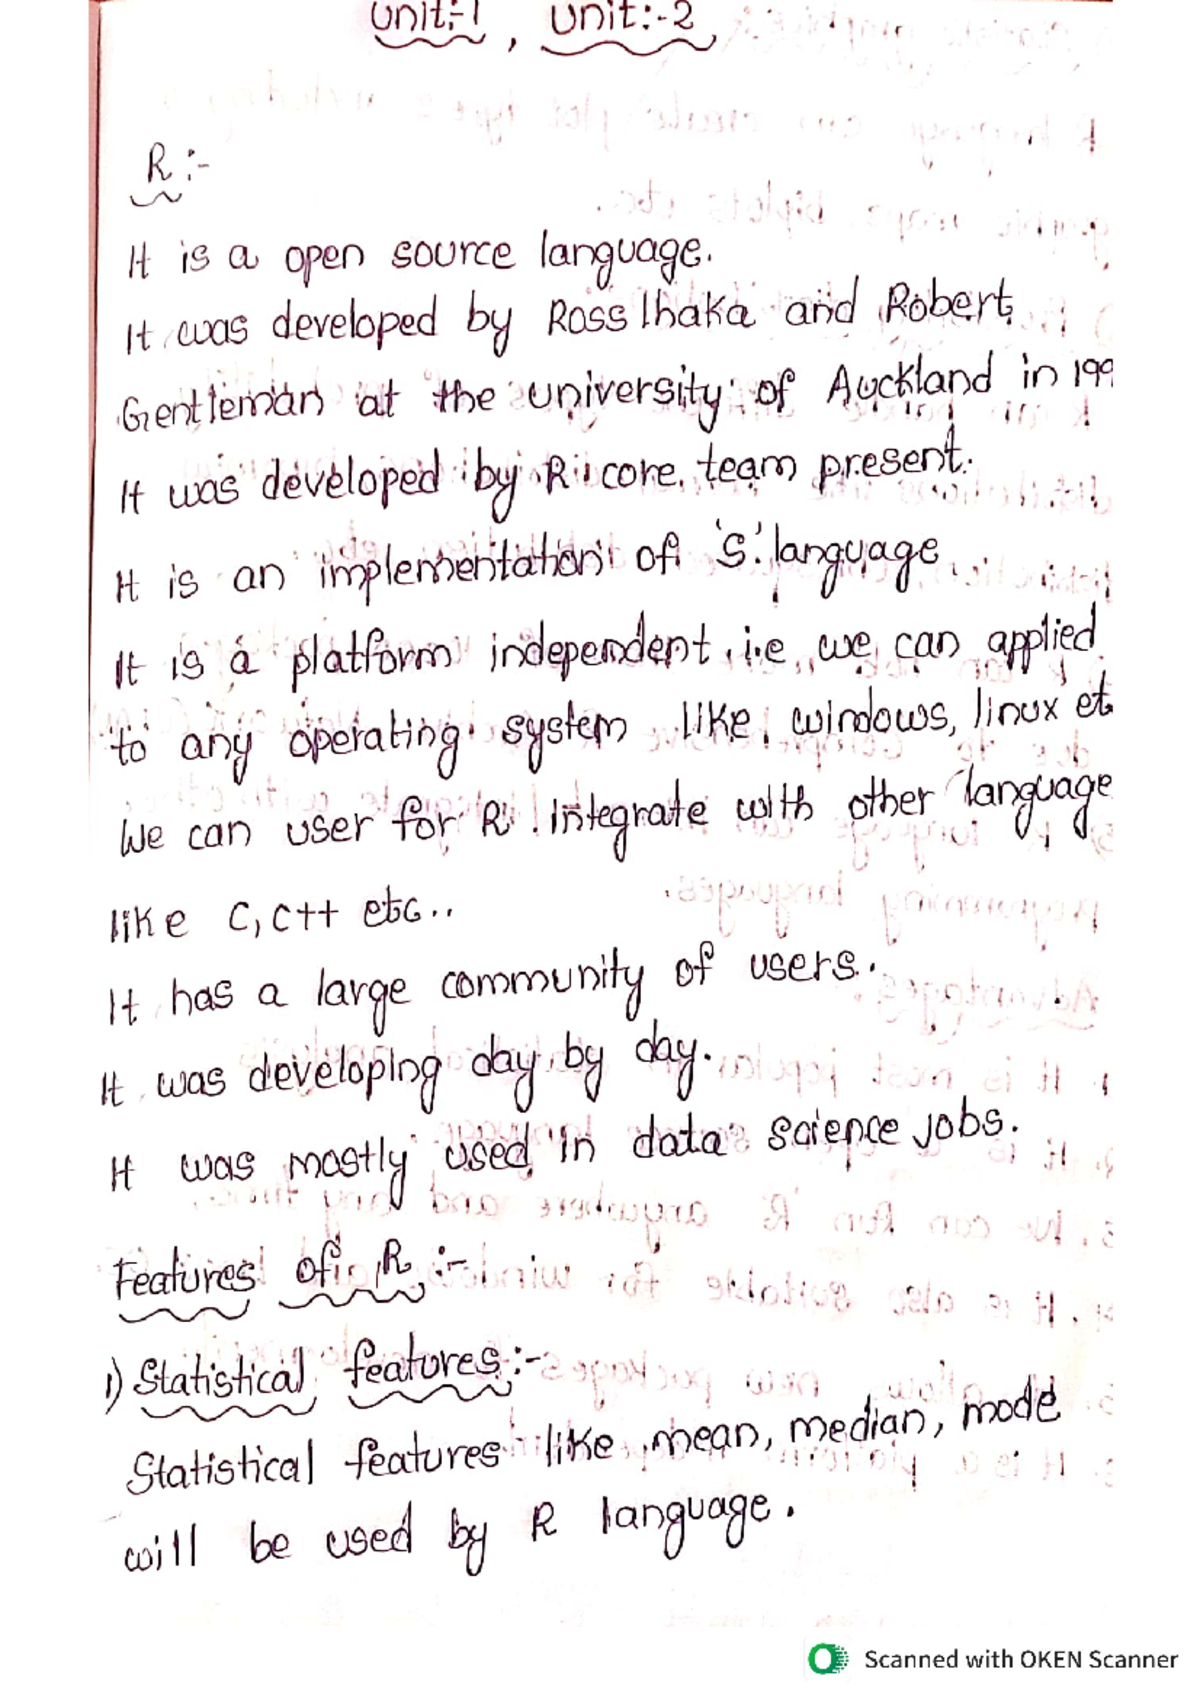 Unit:-1, Unit:-2
R:-
It is a open source language.
It was developed by Ross Ihaka and Robert
Gentleman at the university of Auckland in 199
It was developed by R core team present.
It is an implementation of 'S' language
It is a platform independent i.e we can applied
to any operating system like, windows, linux et
We can user for R integrate with other language
like C, C++ etc..
It has a large community of users.
It was developing day by day.
It was mostly used in data science jobs.
Features of R :-
1) Statistical features:-
Statistical features like mean, median, mode
will be used by R language.
Scanned with OKEN Scanner